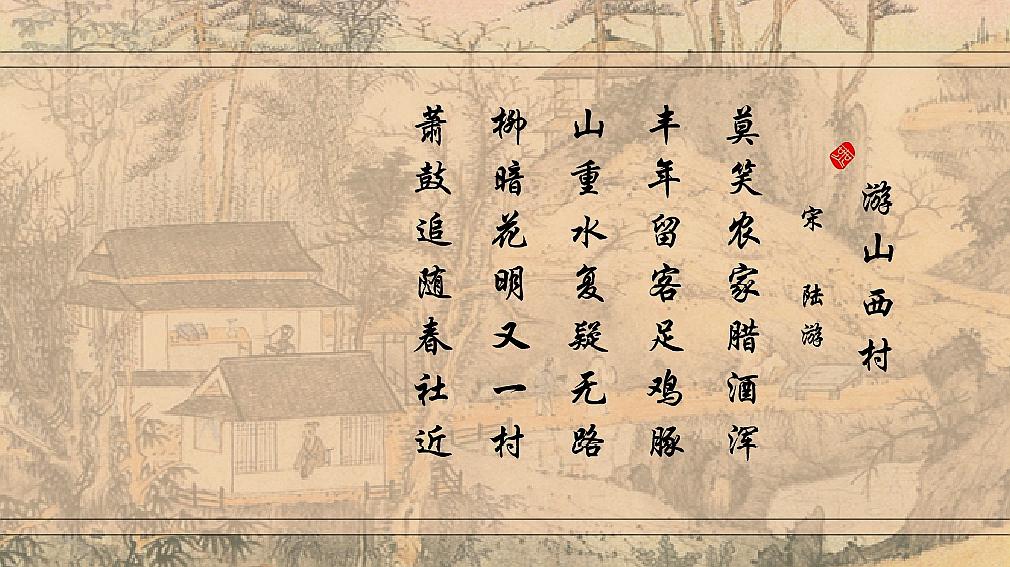 游山西村
宋 陆游
莫笑农家腊酒浑
丰年留客足鸡豚
山重水复疑无路
柳暗花明又一村
萧鼓追随春社近